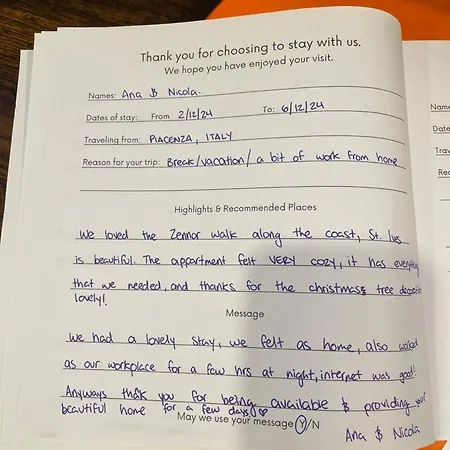 Thank you for choosing to stay with us.
We hope you have enjoyed your visit.
Names: Ana & Nicola.
Dates of stay: From 2/12/24 To: 6/12/24
Traveling from: PIACENZA, ITALY
Reason for your trip: Break/vacation/ a bit of work from home
Highlights & Recommended Places
We loved the Zennor walk along the coast, St. Ives
is beautiful. The appartment felt VERY COZY, it has everything
that we needed, and thanks for the christmas tree decoration
lovely!
Message
We had a lovely stay, we felt as home, also worked
as our workplace for a few hrs at night, internet was good!
Anyways thank you for being available & providing your
beautiful home for a few days! ♡
May we use your message Y/N
Ana & Nicola
Name
Date
Trav
Rea